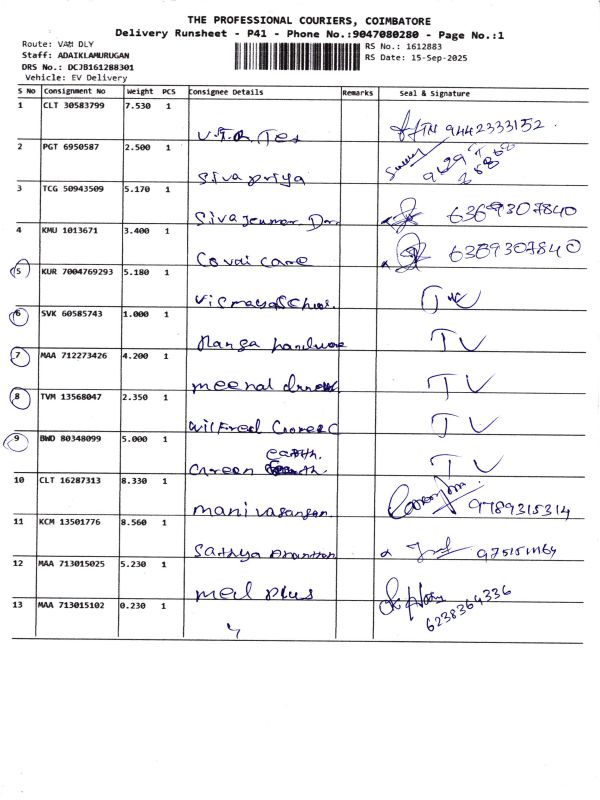 THE PROFESSIONAL COURIERS, COIMBATORE
Delivery Runsheet - P41 - Phone No.:9047080280 - Page No.:1
Route: VAN DLY
Staff: ADAIKLAMURUGAN
DRS No.: DCJB161288301
Vehicle: EV Delivery
RS No.: 1612883
RS Date: 15-Sep-2025
S No Consignment No Weight PCS Consignee Details Remarks Seal & Signature
1 CLT 30583799 7.530 1
V.T.R Tex 9442333152
2 PGT 6950587 2.500 1
Sivapriya
3 TCG 50943509 5.170 1
Sivakumar 6369307840
4 KMU 1013671 3.400 1
Covai care 6389307840
5 KUR 7004769293 5.180 1
6 SVK 60585743 1.000 1
Ranga hardware TV
7 MAA 712273426 4.200 1
meenal TV
8 TVM 13568047 2.350 1
wilfred TV
9 BWD 80348099 5.000 1
earth.
Green TV
10 CLT 16287313 8.330 1
manivasangan 9789315314
11 KCM 13501776 8.560 1
Sathya
12 MAA 713015025 5.230 1
med plus
13 MAA 713015102 0.230 1
6238364336